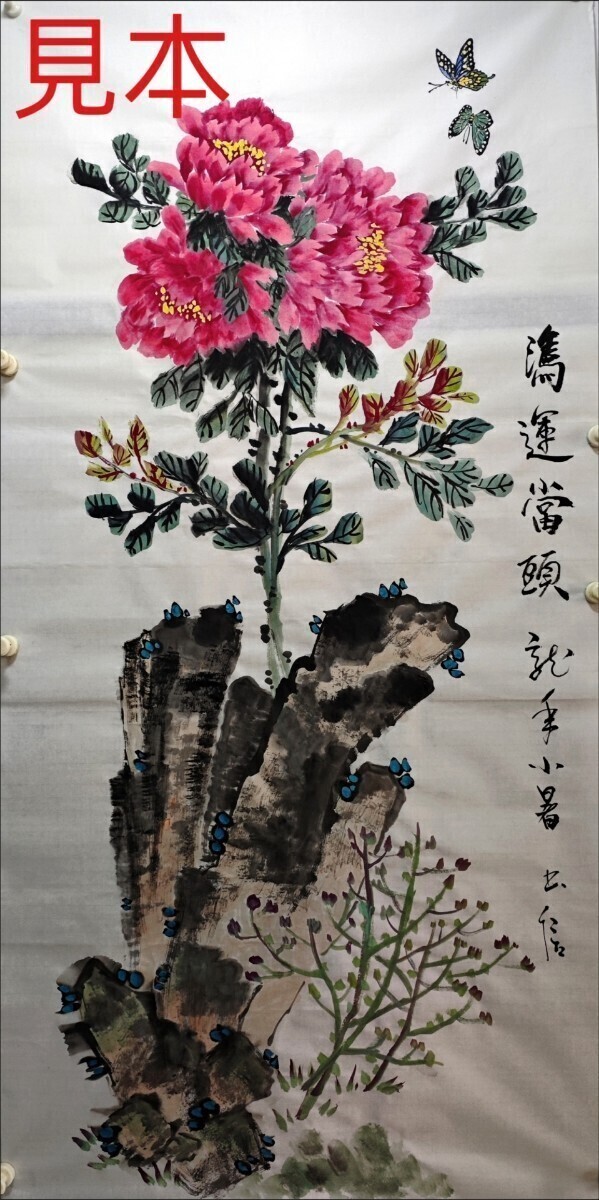 見本
鴻運當頭 龍年小暑 书信